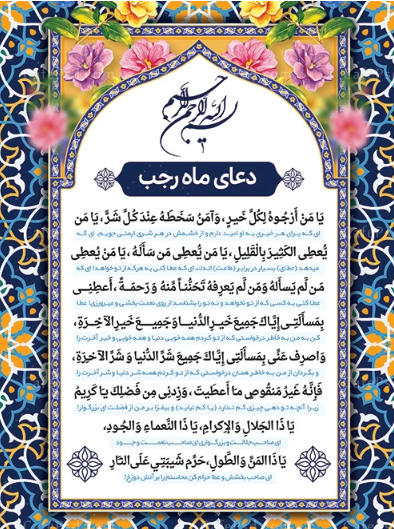 بسم الله الرحمن الرحیم
دعای ماه رجب
یَا مَن أَرجُوهُ لِکُلِّ خَیرٍ، وَآمَنُ سَخَطَهُ عِندَ کُلِّ شَرٍّ، یَا مَن
ای که برای هر خیری به او امید دارم و از خشمش در هر شری ایمنی جویم، ای که
یُعطِی الکَثِیرَ بِالقَلِیلِ، یَا مَن یُعطِی مَن سَأَلَهُ، یَا مَن یُعطِی
میدهد (عطای) بسیار در برابر (طاعت) اندک، ای که عطا کنی به هرکه از تو خواهد! ای که
مَن لَم یَسأَلهُ وَمَن لَم یَعرِفهُ تَحَنُّناً مِنهُ وَرَحمَةً، أَعطِنِی
عطا کنی به کسی که از تو نخواهد و نه تو را بشناسد از روی نعمت بخشی و مهرورزی! عطا
بِمَسأَلَتِی إِیَّاکَ جَمِیعَ خَیرِ الدُّنیَا وَجَمِیعَ خَیرِ الآخِرَةِ،
کن به من به خاطر درخواستی که از تو کردم همه خوبی دنیا و همه خوبی و خیر آخرت را
وَاصرِف عَنِّی بِمَسأَلَتِی إِیَّاکَ جَمِیعَ شَرِّ الدُّنیَا وَ شَرِّ الآخِرَةِ،
و بگردان از من به خاطر همان درخواستی که از تو کردم همه شر دنیا و شر آخرت را
فَإِنَّهُ غَیرُ مَنقُوصٍ مَا أَعطَیتَ، وَزِدنِی مِن فَضلِکَ یَا کَرِیمُ
زیرا آنچه تو دهی چیزی کم ندارد (یا کم نیاید) و بیفزا بر من از فضلت ای بزرگوار!
یَا ذَا الجَلَالِ وَالإِکرَامِ، یَا ذَا النَّعمَاءِ وَالجُودِ،
ای صاحب جلالت و بزرگواری ای صاحب نعمت و جود
یَا ذَا المَنِّ وَالطَّولِ، حَرِّم شَیبَتِی عَلَی النَّارِ
ای صاحب بخشش و عطا حرام کن محاسنم را بر آتش دوزخ!